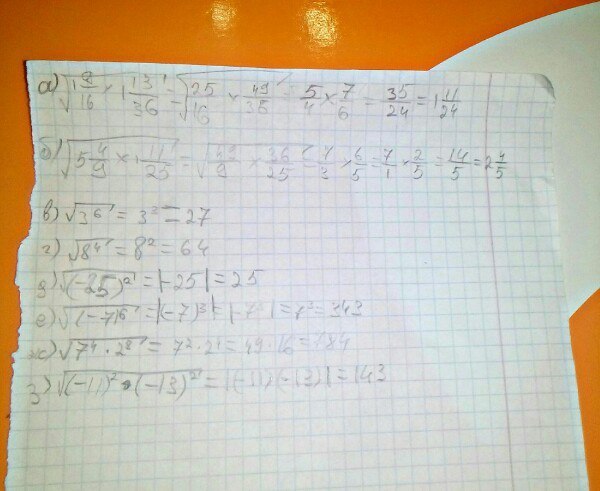 а) √(1 9/16 × 1 13/36) = √(25/16 × 49/36) = 5/4 × 7/6 = 35/24 = 1 11/24
б) √(5 4/9 × 1 11/25) = √(49/9 × 36/25) = 7/3 × 6/5 = 7/1 × 2/5 = 14/5 = 2 4/5
в) √3⁶ = 3³ = 27
г) √8⁴ = 8² = 64
д) √(-25)² = |-25| = 25
е) √(-7)⁶ = |(-7)³| = |-7³| = 7³ = 343
ж) √7⁴ · 2⁸ = 7² · 2⁴ = 49 · 16 = 784
з) √(-11)² · (-13)² = |(-11)(-13)| = 143